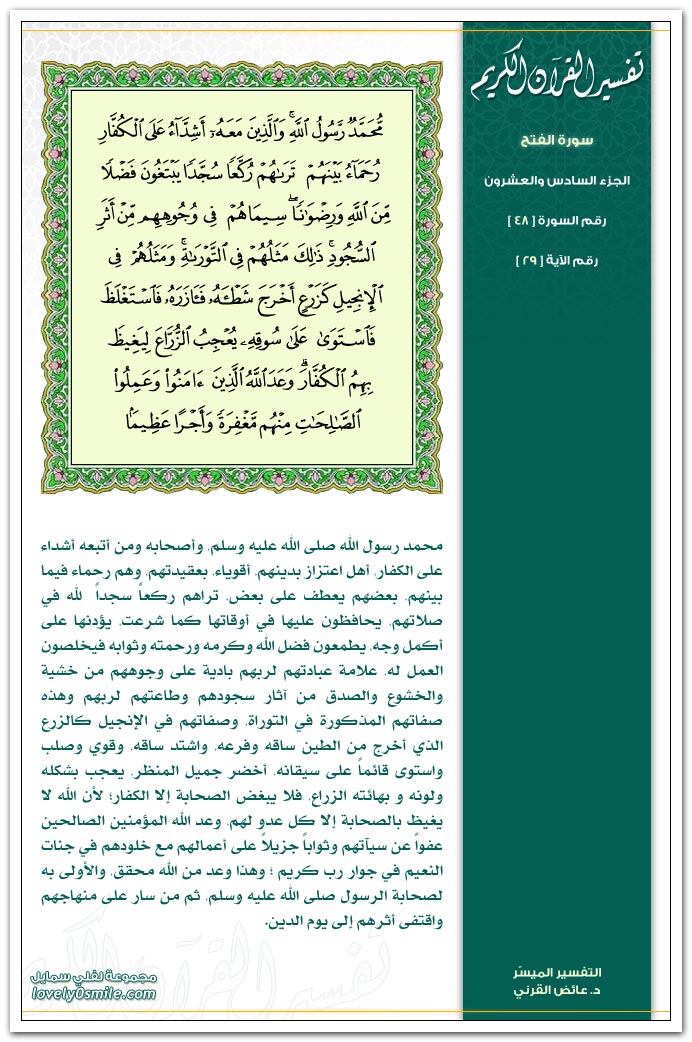 تفسير القرآن الكريم
سورة الفتح
الجزء السادس والعشرون
رقم السورة [ ٤٨ ]
رقم الآية [ ٢٩ ]
مُّحَمَّدٌ رَّسُولُ ٱللَّهِۚ وَٱلَّذِينَ مَعَهُۥٓ أَشِدَّآءُ عَلَى ٱلْكُفَّارِ
رُحَمَآءُ بَيْنَهُمْ تَرَىٰهُمْ رُكَّعًا سُجَّدًا يَبْتَغُونَ فَضْلًا
مِّنَ ٱللَّهِ وَرِضْوَٰنًاۖ سِيمَاهُمْ فِى وُجُوهِهِم مِّنْ أَثَرِ
ٱلسُّجُودِۚ ذَٰلِكَ مَثَلُهُمْ فِى ٱلتَّوْرَىٰةِۚ وَمَثَلُهُمْ فِى
ٱلْإِنجِيلِ كَزَرْعٍ أَخْرَجَ شَطْـَٔهُۥ فَـَٔازَرَهُۥ فَٱسْتَغْلَظَ
فَٱسْتَوَىٰ عَلَىٰ سُوقِهِۦ يُعْجِبُ ٱلزُّرَّاعَ لِيَغِيظَ
بِهِمُ ٱلْكُفَّارَۗ وَعَدَ ٱللَّهُ ٱلَّذِينَ ءَامَنُوا۟ وَعَمِلُوا۟
ٱلصَّٰلِحَٰتِ مِنْهُم مَّغْفِرَةً وَأَجْرًا عَظِيمًۢا
محمد رسول الله صلى الله عليه وسلم، وأصحابه ومن أتبعه أشداء
على الكفار، أهل اعتزاز بدينهم، أقوياء، بعقيدتهم، وهم رحماء فيما
بينهم، بعضهم يعطف على بعض، تراهم ركعاً سجداً لله في
صلاتهم، يحافظون عليها في أوقاتها كما شرعت، يؤدنها على
أكمل وجه، يطمعون فضل الله وكرمه ورحمته وثوابه فيخلصون
العمل له، علامة عبادتهم لربهم بادية على وجوههم من خشية
والخشوع والصدق من آثار سجودهم وطاعتهم لربهم وهذه
صفاتهم المذكورة في التوراة، وصفاتهم في الإنجيل كالزرع
الذي أخرج من الطين ساقه وفرعه، واشتد ساقه، وقوي وصلب
واستوى قائماً على سيقانه، أخضر جميل المنظر، يعجب بشكله
ولونه و بهائته الزراع، فلا يبغض الصحابة إلا الكفار؛ لأن الله لا
يغيظ بالصحابة إلا كل عدو لهم، وعد الله المؤمنين الصالحين
عفواً عن سيآتهم وثواباً جزيلاً على أعمالهم مع خلودهم في جنات
النعيم في جوار رب كريم ؛ وهذا وعد من الله محقق، والأولى به
لصحابة الرسول صلى الله عليه وسلم، ثم من سار على منهاجهم
واقتفى أثرهم إلى يوم الدين.
التفسير الميسّر
د. عائض القرني
مجموعة لفلي سمايل
lovely0smile.com
تفسير القرآن الكريم